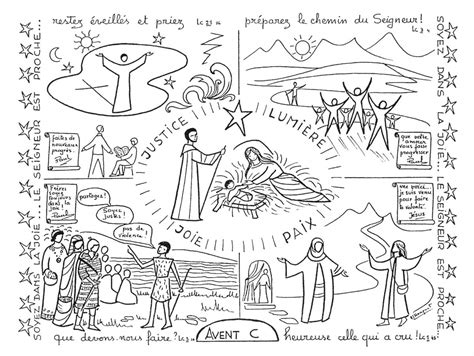 restez éveillés et priez Lc 21
préparez le chemin du Seigneur! Lc 3
SOYEZ DANS LA JOIE... LE SEIGNEUR EST PROCHE...
SOYEZ DANS LA JOIE... LE SEIGNEUR EST PROCHE...
JUSTICE
LUMIÈRE
JOIE
PAIX
faites de
nouveaux
progrès.
Paul
que votre
amour
vous fasse
progresser
Paul
Frères
soyez
toujours
dans la
joie,
Paul
partagez!
Soyez
justes!
pas de
violence!
me voici,
je suis venu
pour faire
ta volonté.
Jésus
que devons-nous faire? Lc 3
AVENT C
heureuse celle qui a cru! Lc 1